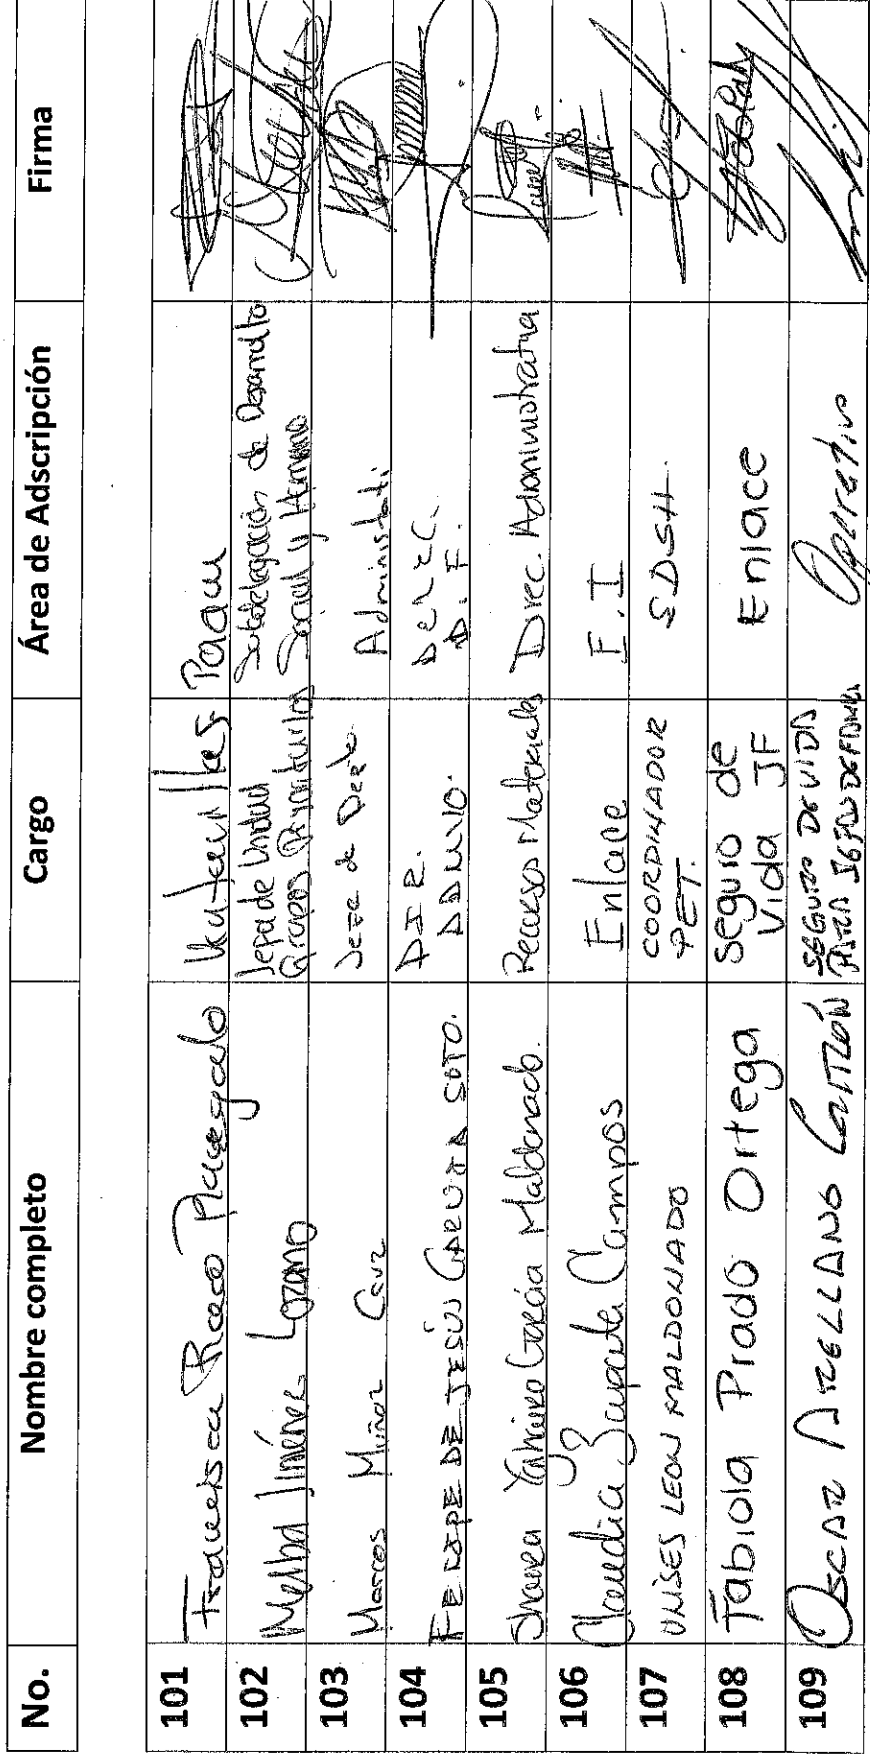 No. Nombre completo Cargo Área de Adscripción Firma
101 Francisca
102 Melba Jiménez Lozano Jefa de Unidad Grupos Prioritarios Subdelegación de Desarrollo Social y Humano
103 Marcos Muñoz Cruz Jefe de Depto. Administrati.
104 FELIPE DE JESÚS SOTO. DIR. ADMVO. D. F.
105 García Maldonado. Recursos Materiales Direc. Administrativa
106 Claudia Zapata Campos Enlace F.I
107 LEON MALDONADO COORDINADOR PET. SDSH.
108 Fabiola Prado Ortega Seguro de Vida JF Enlace
109 OSCAR ARELLANO SEGURO DE VIDA PARA JEFAS DE FAMILIA Operativo